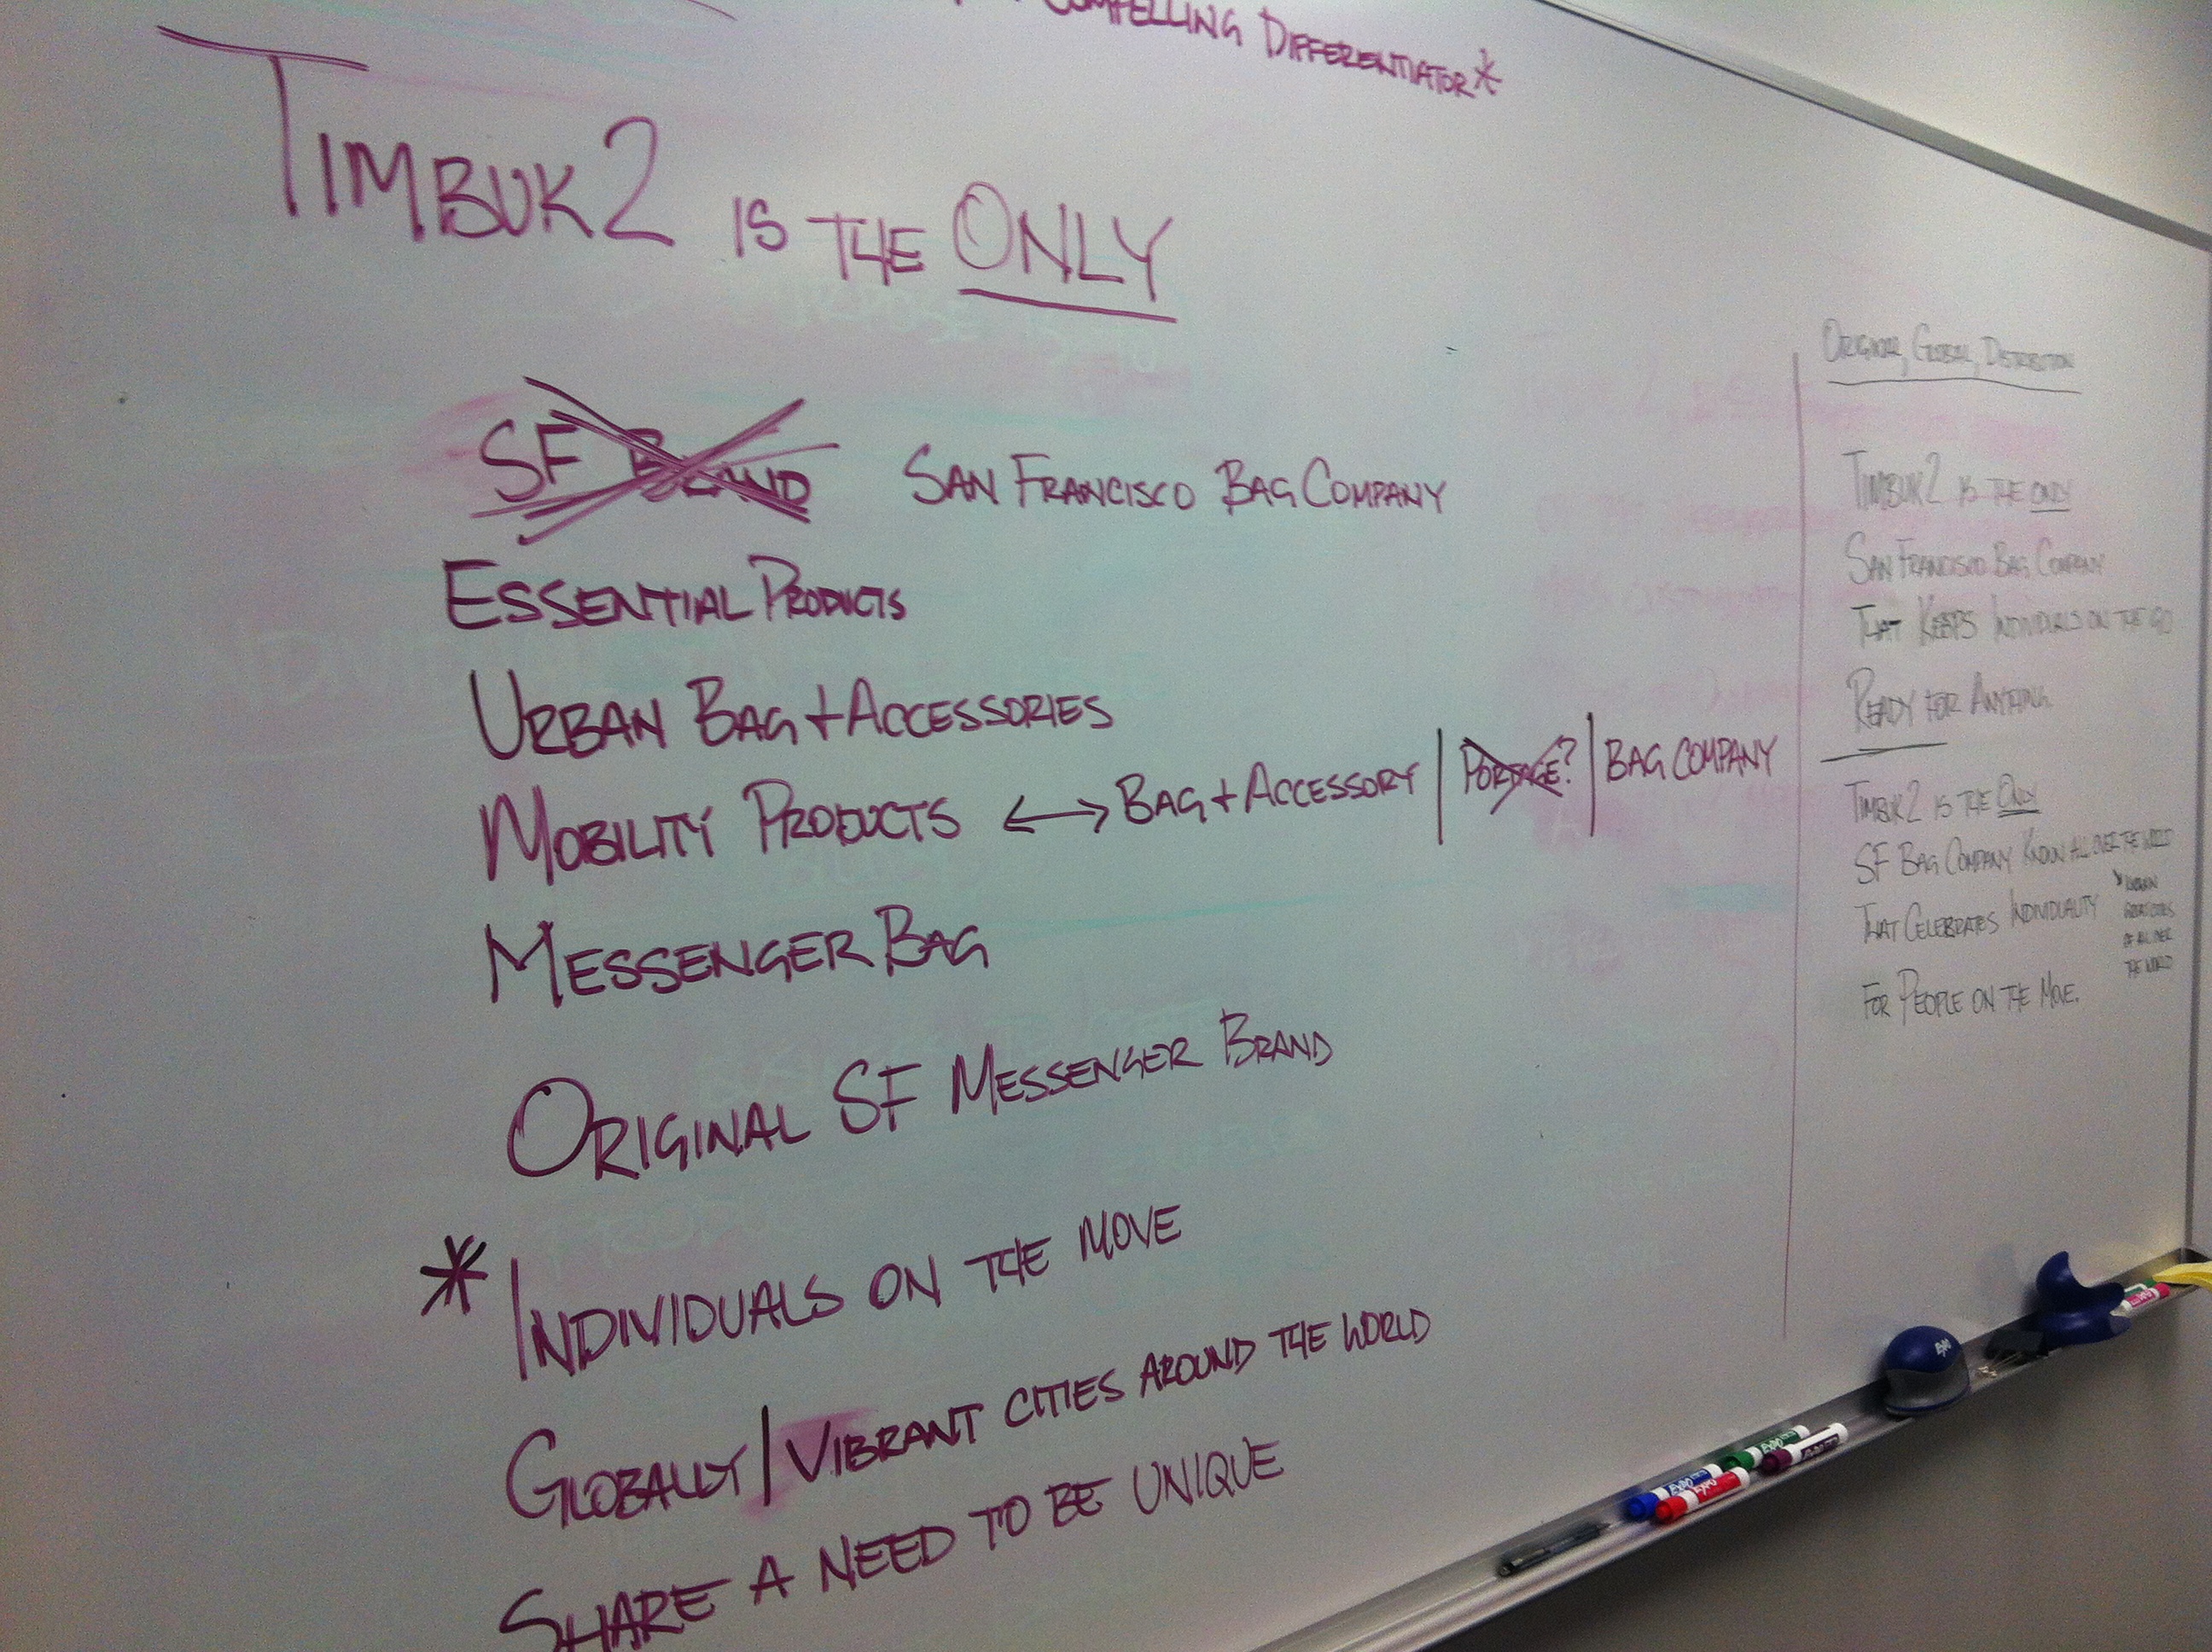 COMPELLING DIFFERENTIATOR*
TIMBUK2 IS THE ONLY
SF BRAND SAN FRANCISCO BAG COMPANY
ESSENTIAL PRODUCTS
URBAN BAG + ACCESSORIES
MOBILITY PRODUCTS ↔ BAG + ACCESSORY | PORTAGE? | BAG COMPANY
MESSENGER BAG
ORIGINAL SF MESSENGER BRAND
* INDIVIDUALS ON THE MOVE
GLOBALLY / VIBRANT CITIES AROUND THE WORLD
SHARE A NEED TO BE UNIQUE
ORIGINAL, GLOBAL, DISTRIBUTION
TIMBUK2 IS THE ONLY
SAN FRANCISCO BAG COMPANY
THAT KEEPS INDIVIDUALS ON THE GO
READY FOR ANYTHING
TIMBUK2 IS THE ONLY
SF BAG COMPANY KNOWN ALL OVER THE WORLD
THAT CELEBRATES INDIVIDUALITY
OF ALL OVER
THE WORLD
FOR PEOPLE ON THE MOVE.
EXPO
EXPO
EXPO
EXPO